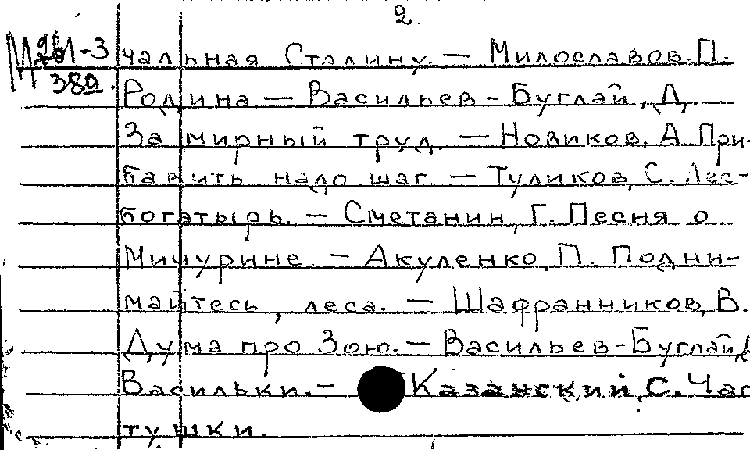 2.
М 261-3 чальная Сталину. — Милославов П.
382 Родина — Васильев-Буглай, Д.
За мирный труд. — Новиков, А. При-
бавить надо шаг. — Туликов, С. Лес-
богатырь. — Сметанин, Г. Песня о
Мичурине. — Акуленко, П. Подни-
майтесь, леса. — Шафранников, В.
Дума про Зою. — Васильев-Буглай, Д.
Васильки. — Казанский, С. Час
тушки.